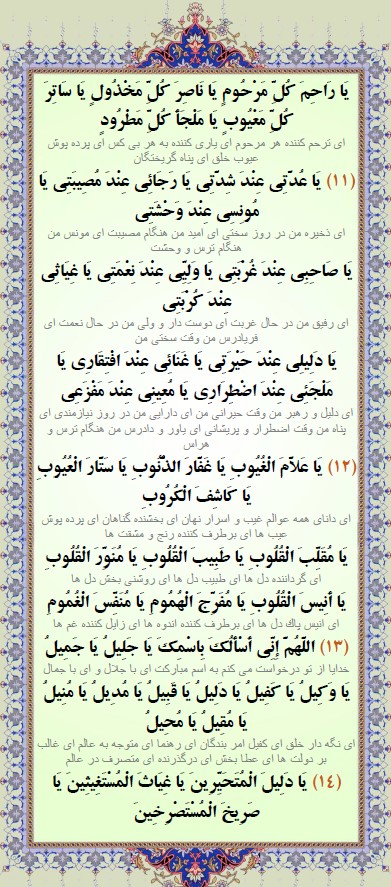 يَا رَاحِمَ كُلِّ مَرْحُومٍ يَا نَاصِرَ كُلِّ مَخْذُولٍ يَا سَاتِرَ
كُلِّ مَعْيُوبٍ يَا مَلْجَأَ كُلِّ مَطْرُودٍ
ای ترحم کننده هر مرحوم ای یاری کننده به هر بی کس ای پرده پوش
عیوب خلق ای پناه گریختگان
(۱۱) يَا عُدَّتِی عِنْدَ شِدَّتِی يَا رَجَائِی عِنْدَ مُصِيبَتِی يَا
مُونِسِی عِنْدَ وَحْشَتِی
ای ذخیره من در روز سختی ای امید من هنگام مصیبت ای مونس من
هنگام ترس و وحشت
يَا صَاحِبِی عِنْدَ غُرْبَتِی يَا وَلِيِّی عِنْدَ نِعْمَتِی يَا غِيَاثِی
عِنْدَ كُرْبَتِی
ای رفیق من در حال غربت ای دوست دار و ولی من در حال نعمت ای
فریادرس من وقت سختی من
يَا دَلِيلِی عِنْدَ حَيْرَتِی يَا غَنَائِی عِنْدَ افْتِقَارِی يَا
مَلْجَئِی عِنْدَ اضْطِرَارِی يَا مُعِينِی عِنْدَ مَفْزَعِی
ای دلیل و رهبر من وقت حیرانی من ای دارایی من در روز نیازمندی ای
پناه من وقت اضطرار و پریشانی ای یاور و دادرس من هنگام ترس و
هراس
(۱۲) يَا عَلاَّمَ الْغُيُوبِ يَا غَفَّارَ الذُّنُوبِ يَا سَتَّارَ الْعُيُوبِ
يَا كَاشِفَ الْكُرُوبِ
ای دانای همه عوالم غیب و اسرار نهان ای بخشنده گناهان ای پرده پوش
عیب ها ای برطرف کننده رنج و مشقت ها
يَا مُقَلِّبَ الْقُلُوبِ يَا طَبِيبَ الْقُلُوبِ يَا مُنَوِّرَ الْقُلُوبِ
ای گرداننده دل ها ای طبیب دل ها ای روشنی بخش دل ها
يَا أَنِيسَ الْقُلُوبِ يَا مُفَرِّجَ الْهُمُومِ يَا مُنَفِّسَ الْغُمُومِ
ای انیس پاك دل ها ای برطرف کننده اندوه ها ای زایل کننده غم ها
(۱۳) اللَّهُمَّ إِنِّی أَسْأَلُكَ بِاسْمِكَ يَا جَلِيلُ يَا جَمِيلُ
خدایا از تو درخواست می کنم به اسم مبارکت ای با جلال و ای با جمال
يَا وَكِيلُ يَا كَفِيلُ يَا دَلِيلُ يَا قَبِيلُ يَا مُدِيلُ يَا مُنِيلُ
يَا مُقِيلُ يَا مُحِيلُ
ای نگه دار خلق ای کفیل امر بندگان ای رهنما ای متوجه به عالم ای غالب
بر دولت ها ای عطا بخش ای درگذرنده ای متصرف در عالم
(۱٤) يَا دَلِيلَ الْمُتَحَيِّرِينَ يَا غِيَاثَ الْمُسْتَغِيثِينَ يَا
صَرِيخَ الْمُسْتَصْرِخِينَ